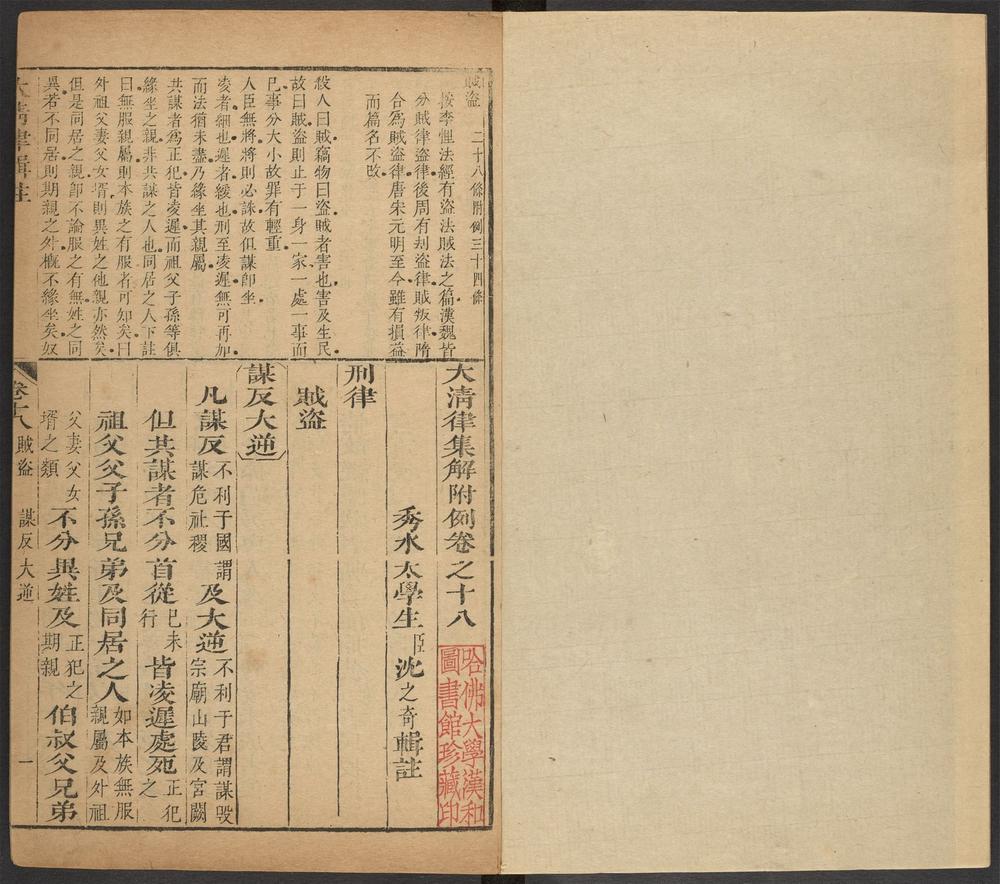 賊盜 二十八條附例三十四條
按李悝法經有盜法賊法之篇漢魏皆
分賊律盜律後周有刼盜律賊叛律隋
合爲賊盜律唐宋元明至今雖有損益
而篇名不改
殺人曰賊竊物曰盜賊者害也害及生民
故曰賊盜則止于一身一家一處一事而
已事分大小故罪有輕重
人臣無將將則必誅故但謀卽坐
凌者細也遲者緩也刑至凌遲無可再加
而法猶未盡乃緣坐其親屬
共謀者爲正犯皆凌遲而祖父子孫等俱
緣坐之親非共謀之人也同居之人下註
曰無服親屬則本族之有服者可知矣曰
外祖父妻父女壻則異姓之他親亦然矣
但是同居之親卽不論服之有無姓之同
異若不同居則期親之外槪不緣坐矣奴
大清律集解附例卷之十八
秀水太學生臣沈之奇輯註
刑律
賊盜
謀反大逆
凡謀反不利于國謂謀危社稷及大逆不利于君謂謀毀宗廟山陵及宮闕
但共謀者不分首從已未行皆凌遲處死正犯之
祖父父子孫兄弟及同居之人如本族無服親屬及外祖
父妻父女壻之類不分異姓及正犯之期親伯叔父兄弟
大清律輯註
卷十八 賊盜 謀反大逆 一
哈佛大學漢和圖書館珍藏印